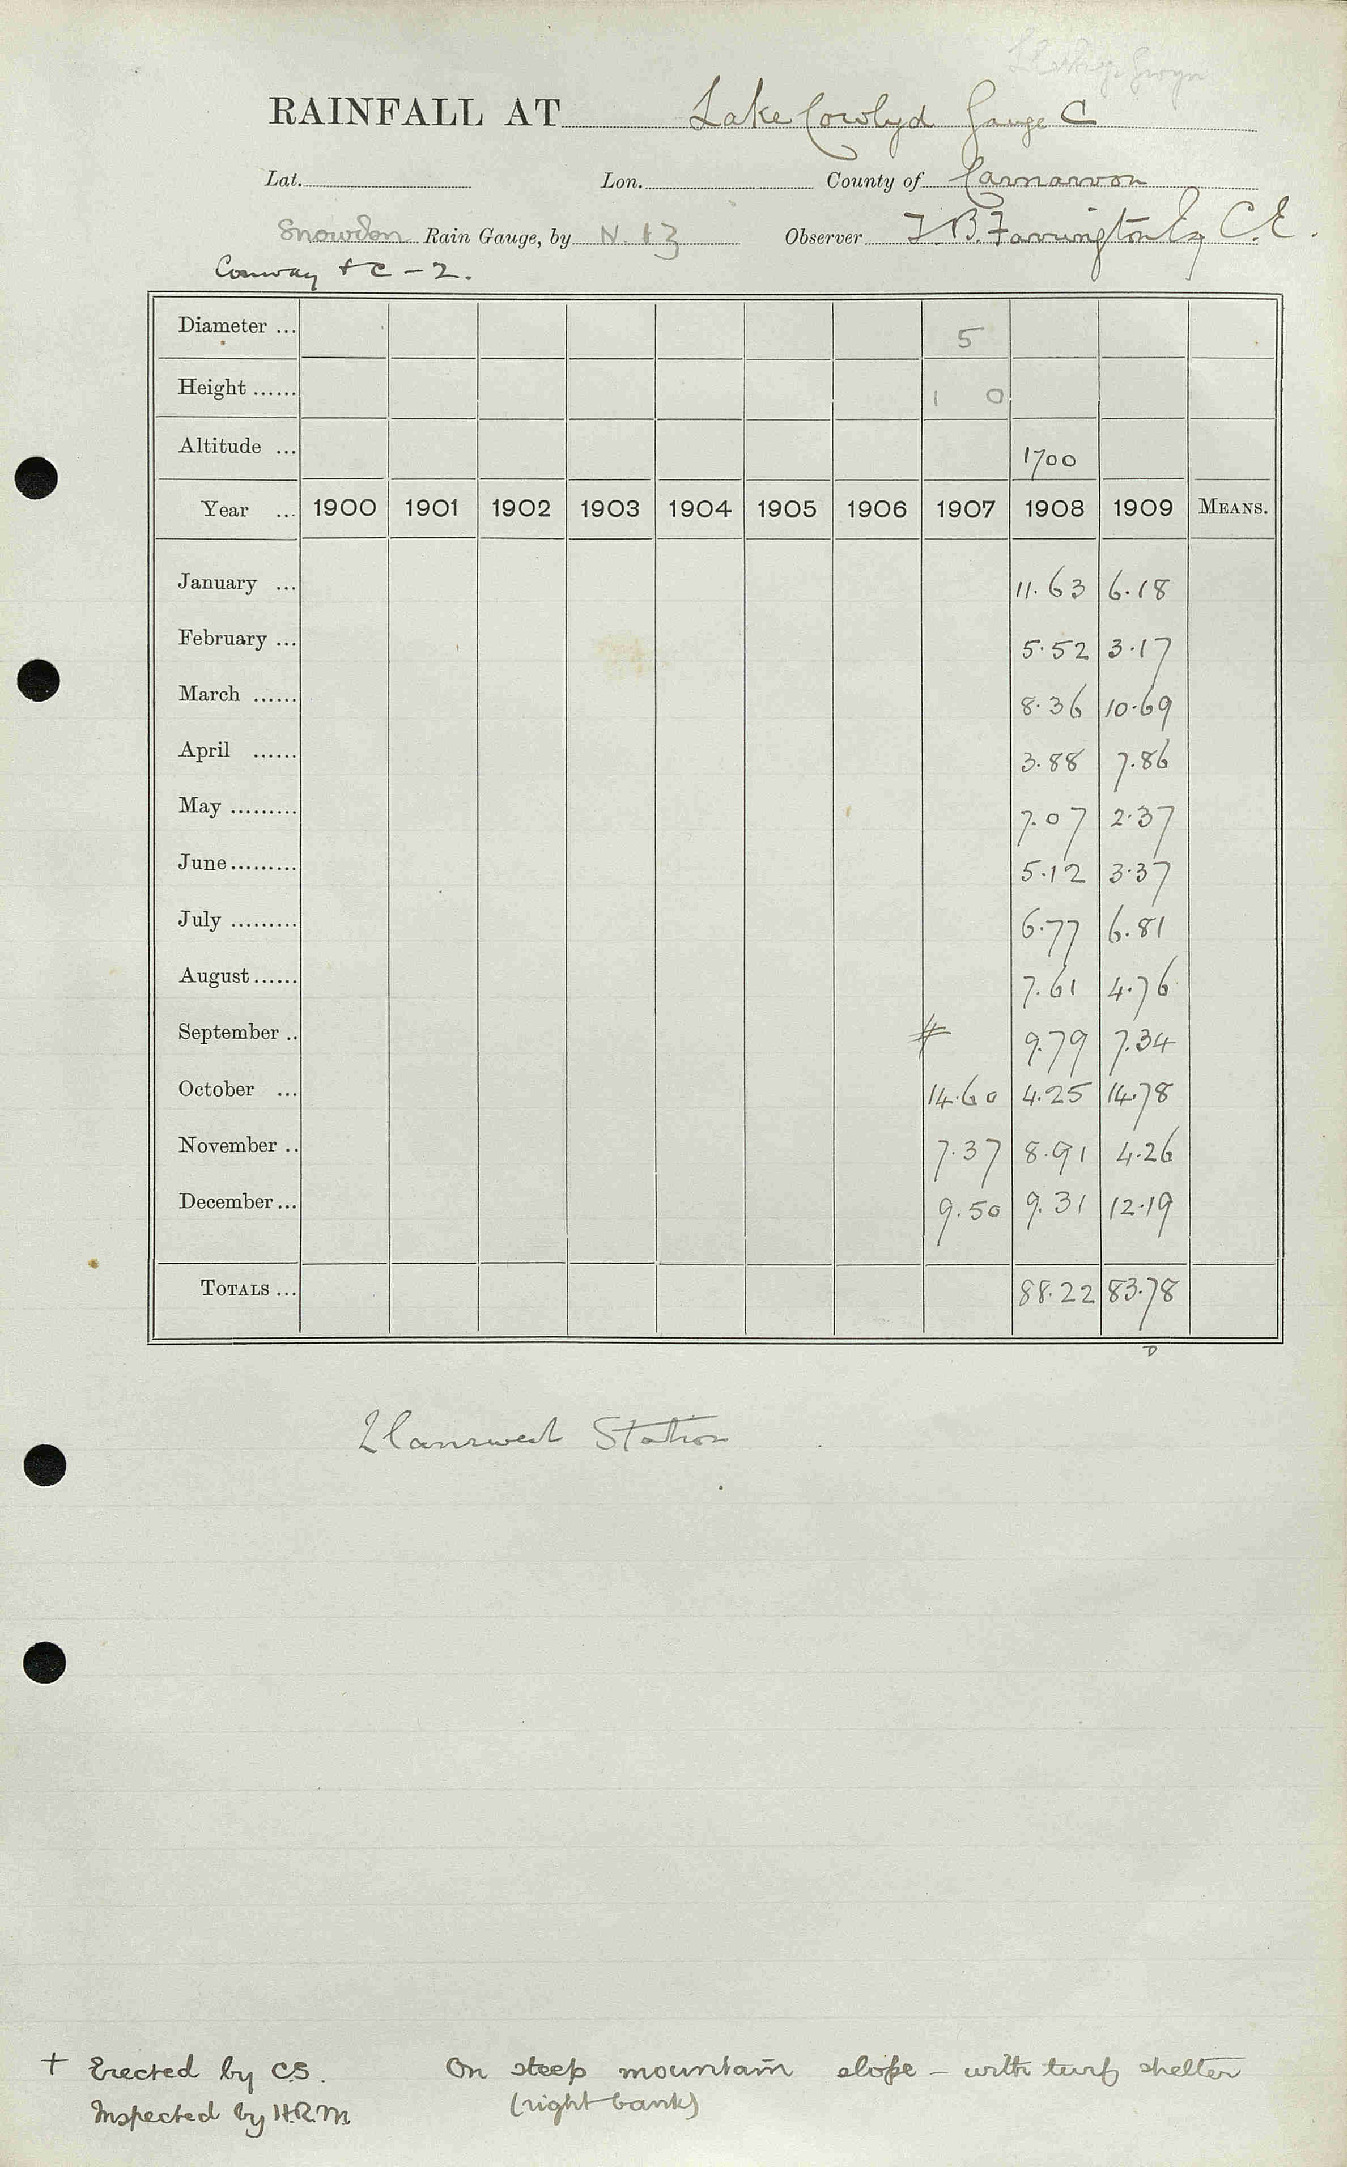 RAINFALL AT Lake Cowlyd Gauge C
Lat. Lon. County of Carnarvon
Snowdon Rain Gauge, by N. & Z Observer T.B. Farrington Esq C.E.
Conway & C - 2.
Diameter ... 5
Height ...... 1 0
Altitude ... 1700
Year ... 1900 1901 1902 1903 1904 1905 1906 1907 1908 1909 MEANS.
January ... 11.63 6.18
February ... 5.52 3.17
March ...... 8.36 10.69
April ...... 3.88 7.86
May ......... 7.07 2.37
June ......... 5.12 3.37
July ......... 6.77 6.81
August ...... 7.61 4.76
September .. ‡ 9.79 7.34
October ... 14.60 4.25 14.78
November .. 7.37 8.91 4.26
December ... 9.50 9.31 12.19
TOTALS ... 88.22 83.78
D
Llanrwst Station
† Erected by CS. On steep mountain slope - with turf shelter
Inspected by H.R.M. (right bank)